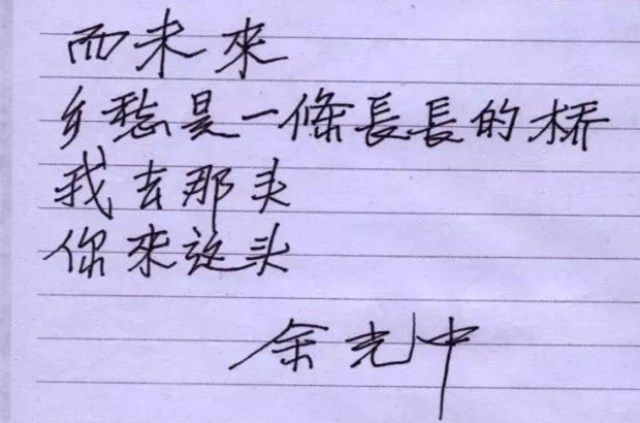 而未來
乡愁是一條長長的桥
我去那头
你來这头
余光中